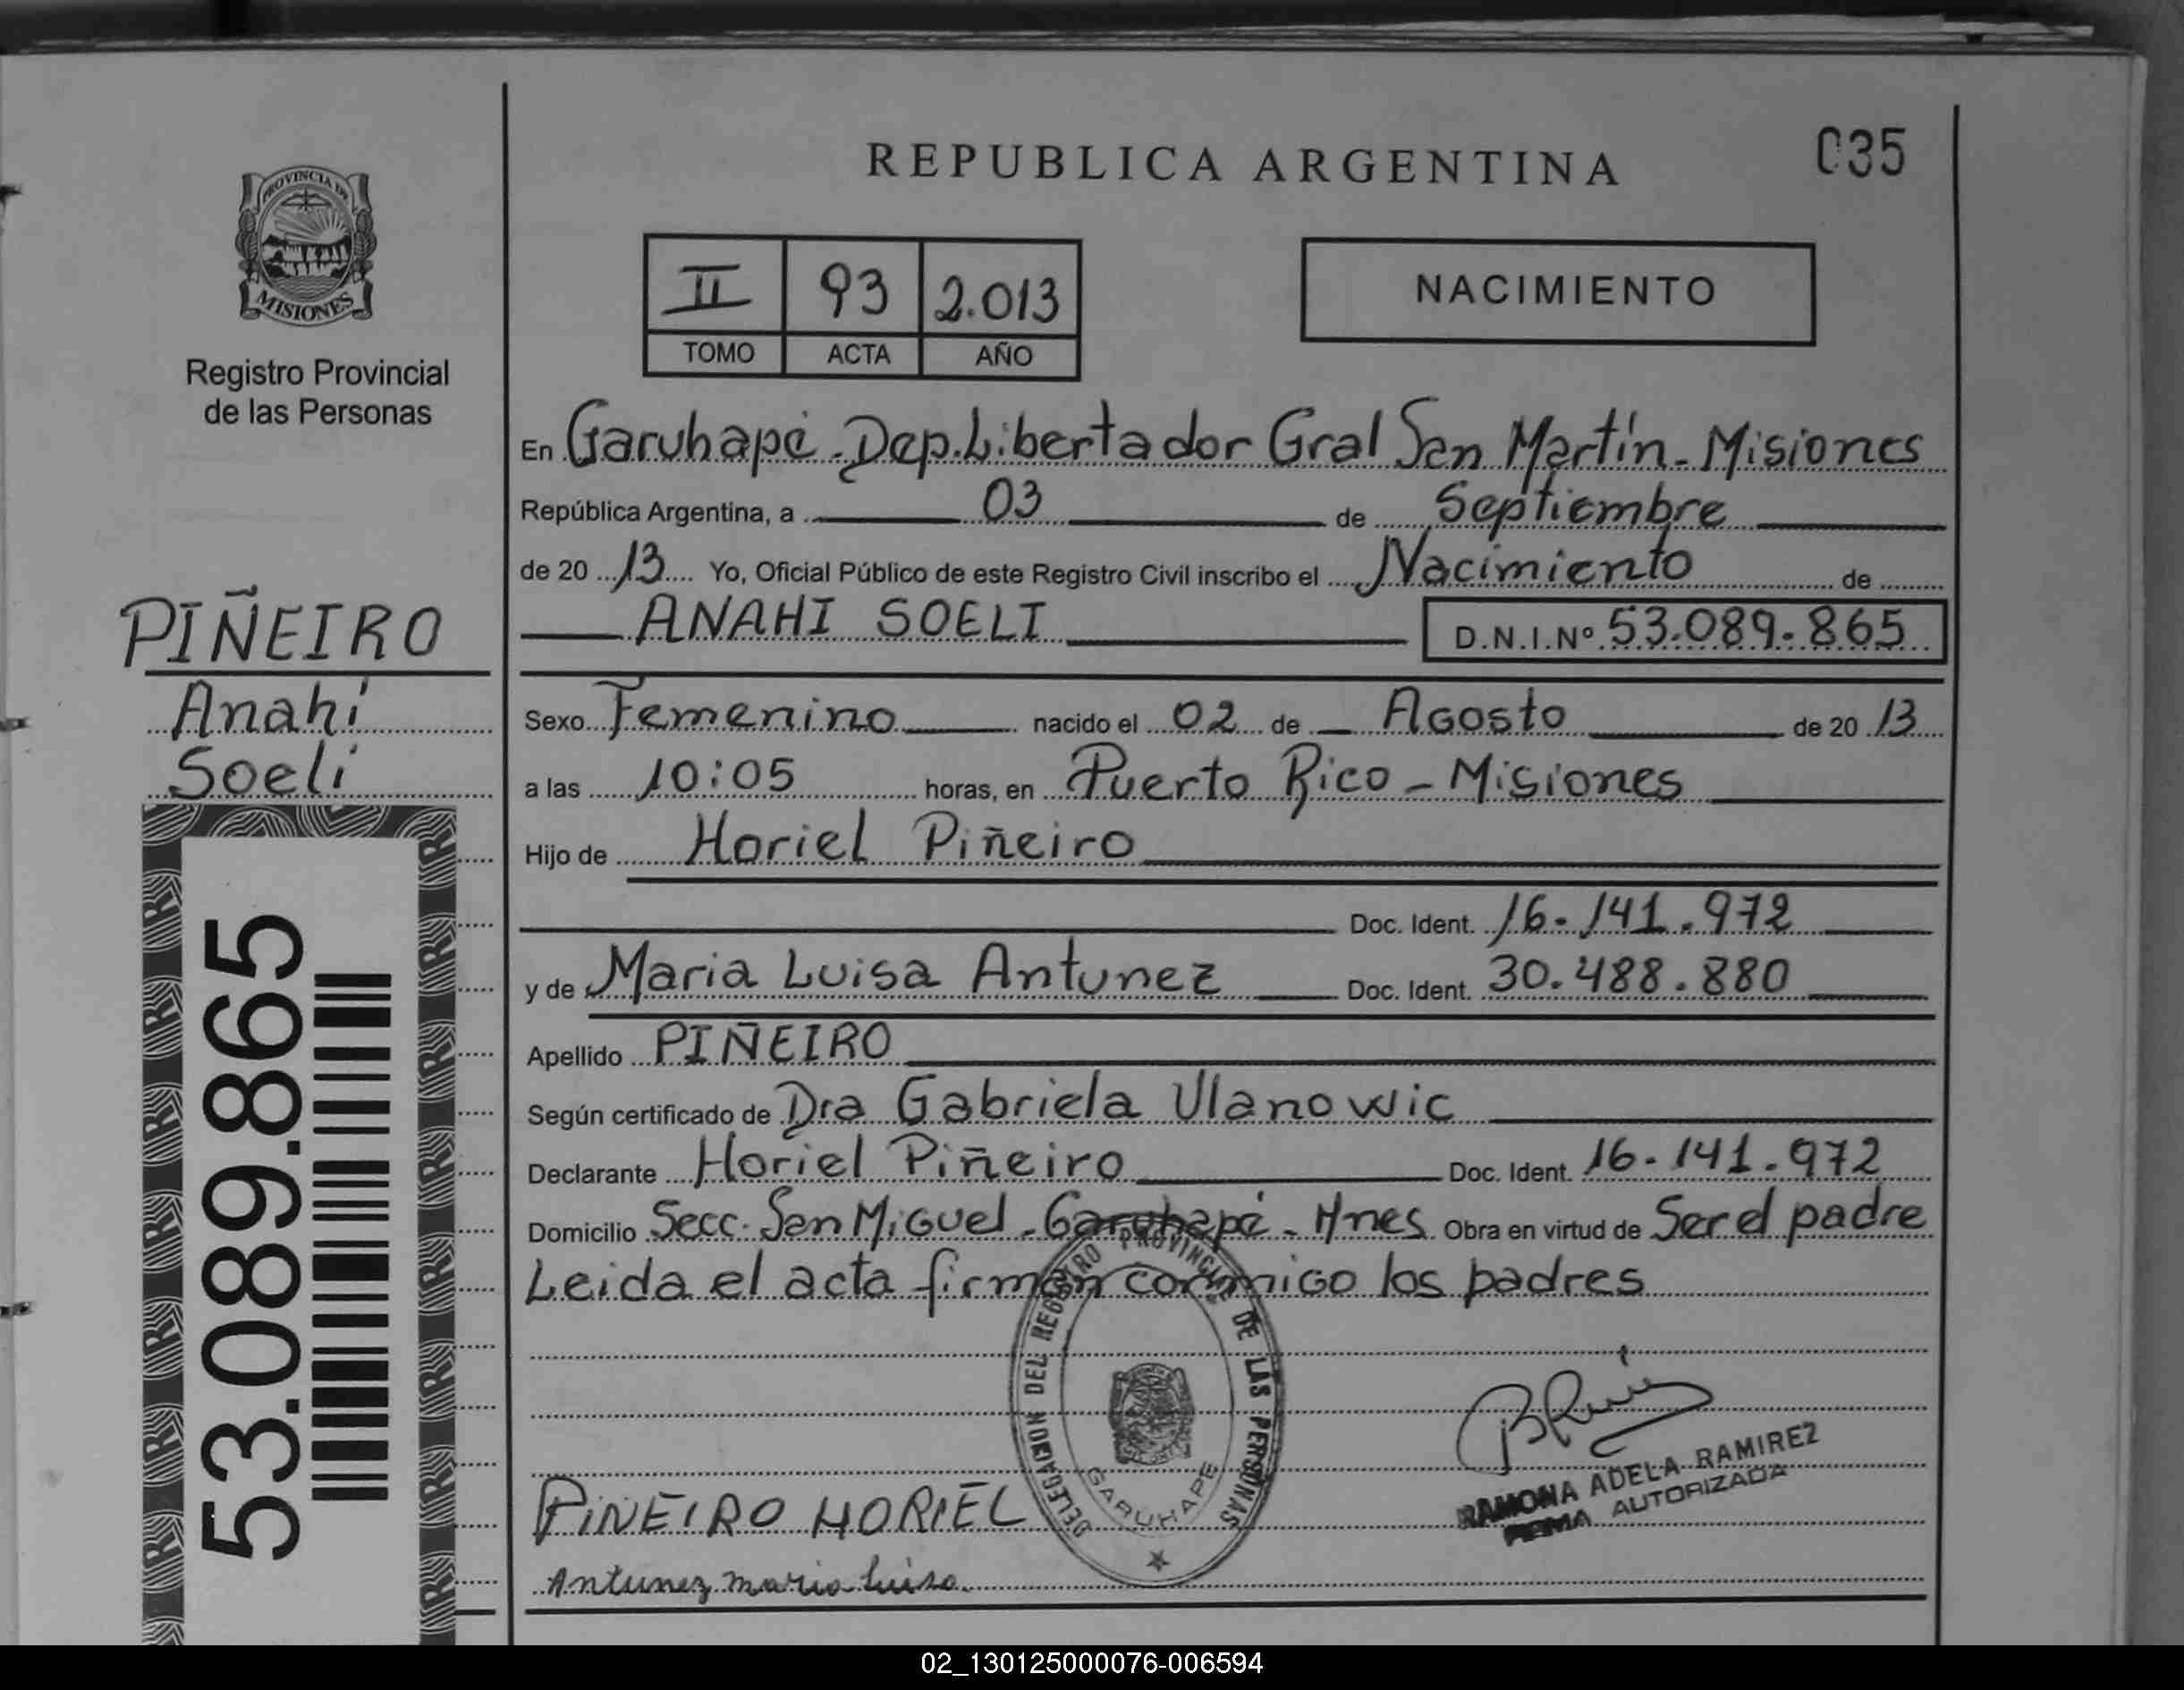 REPUBLICA ARGENTINA
035
PROVINCIA DE
MISIONES
Registro Provincial
de las Personas
II 93 2.013
TOMO ACTA AÑO
NACIMIENTO
En Garuhapé - Dep. Libertador Gral San Martín - Misiones
República Argentina, a 03 de Septiembre
de 20 13 Yo, Oficial Público de este Registro Civil inscribo el Nacimiento de
ANAHI SOELI D.N.I.Nº 53.089.865
PIÑEIRO
Anahí
Soeli
Sexo Femenino nacido el 02 de Agosto de 20 13
a las 10:05 horas, en Puerto Rico - Misiones
Hijo de Horiel Piñeiro
Doc. Ident. 16.141.972
y de Maria Luisa Antunez Doc. Ident. 30.488.880
Apellido PIÑEIRO
Según certificado de Dra Gabriela Ulanowic
Declarante Horiel Piñeiro Doc. Ident. 16.141.972
Domicilio Secc. San Miguel - Garuhapé - Mnes Obra en virtud de Ser el padre
Leida el acta firman conmigo los padres
53.089.865
DELEGACION DEL REGISTRO PROVINCIAL DE LAS PERSONAS
GARUHAPE
RAMONA ADELA RAMIREZ
FIRMA AUTORIZADA
PIÑEIRO HORIEL
Antunez maria luisa
02_130125000076-006594